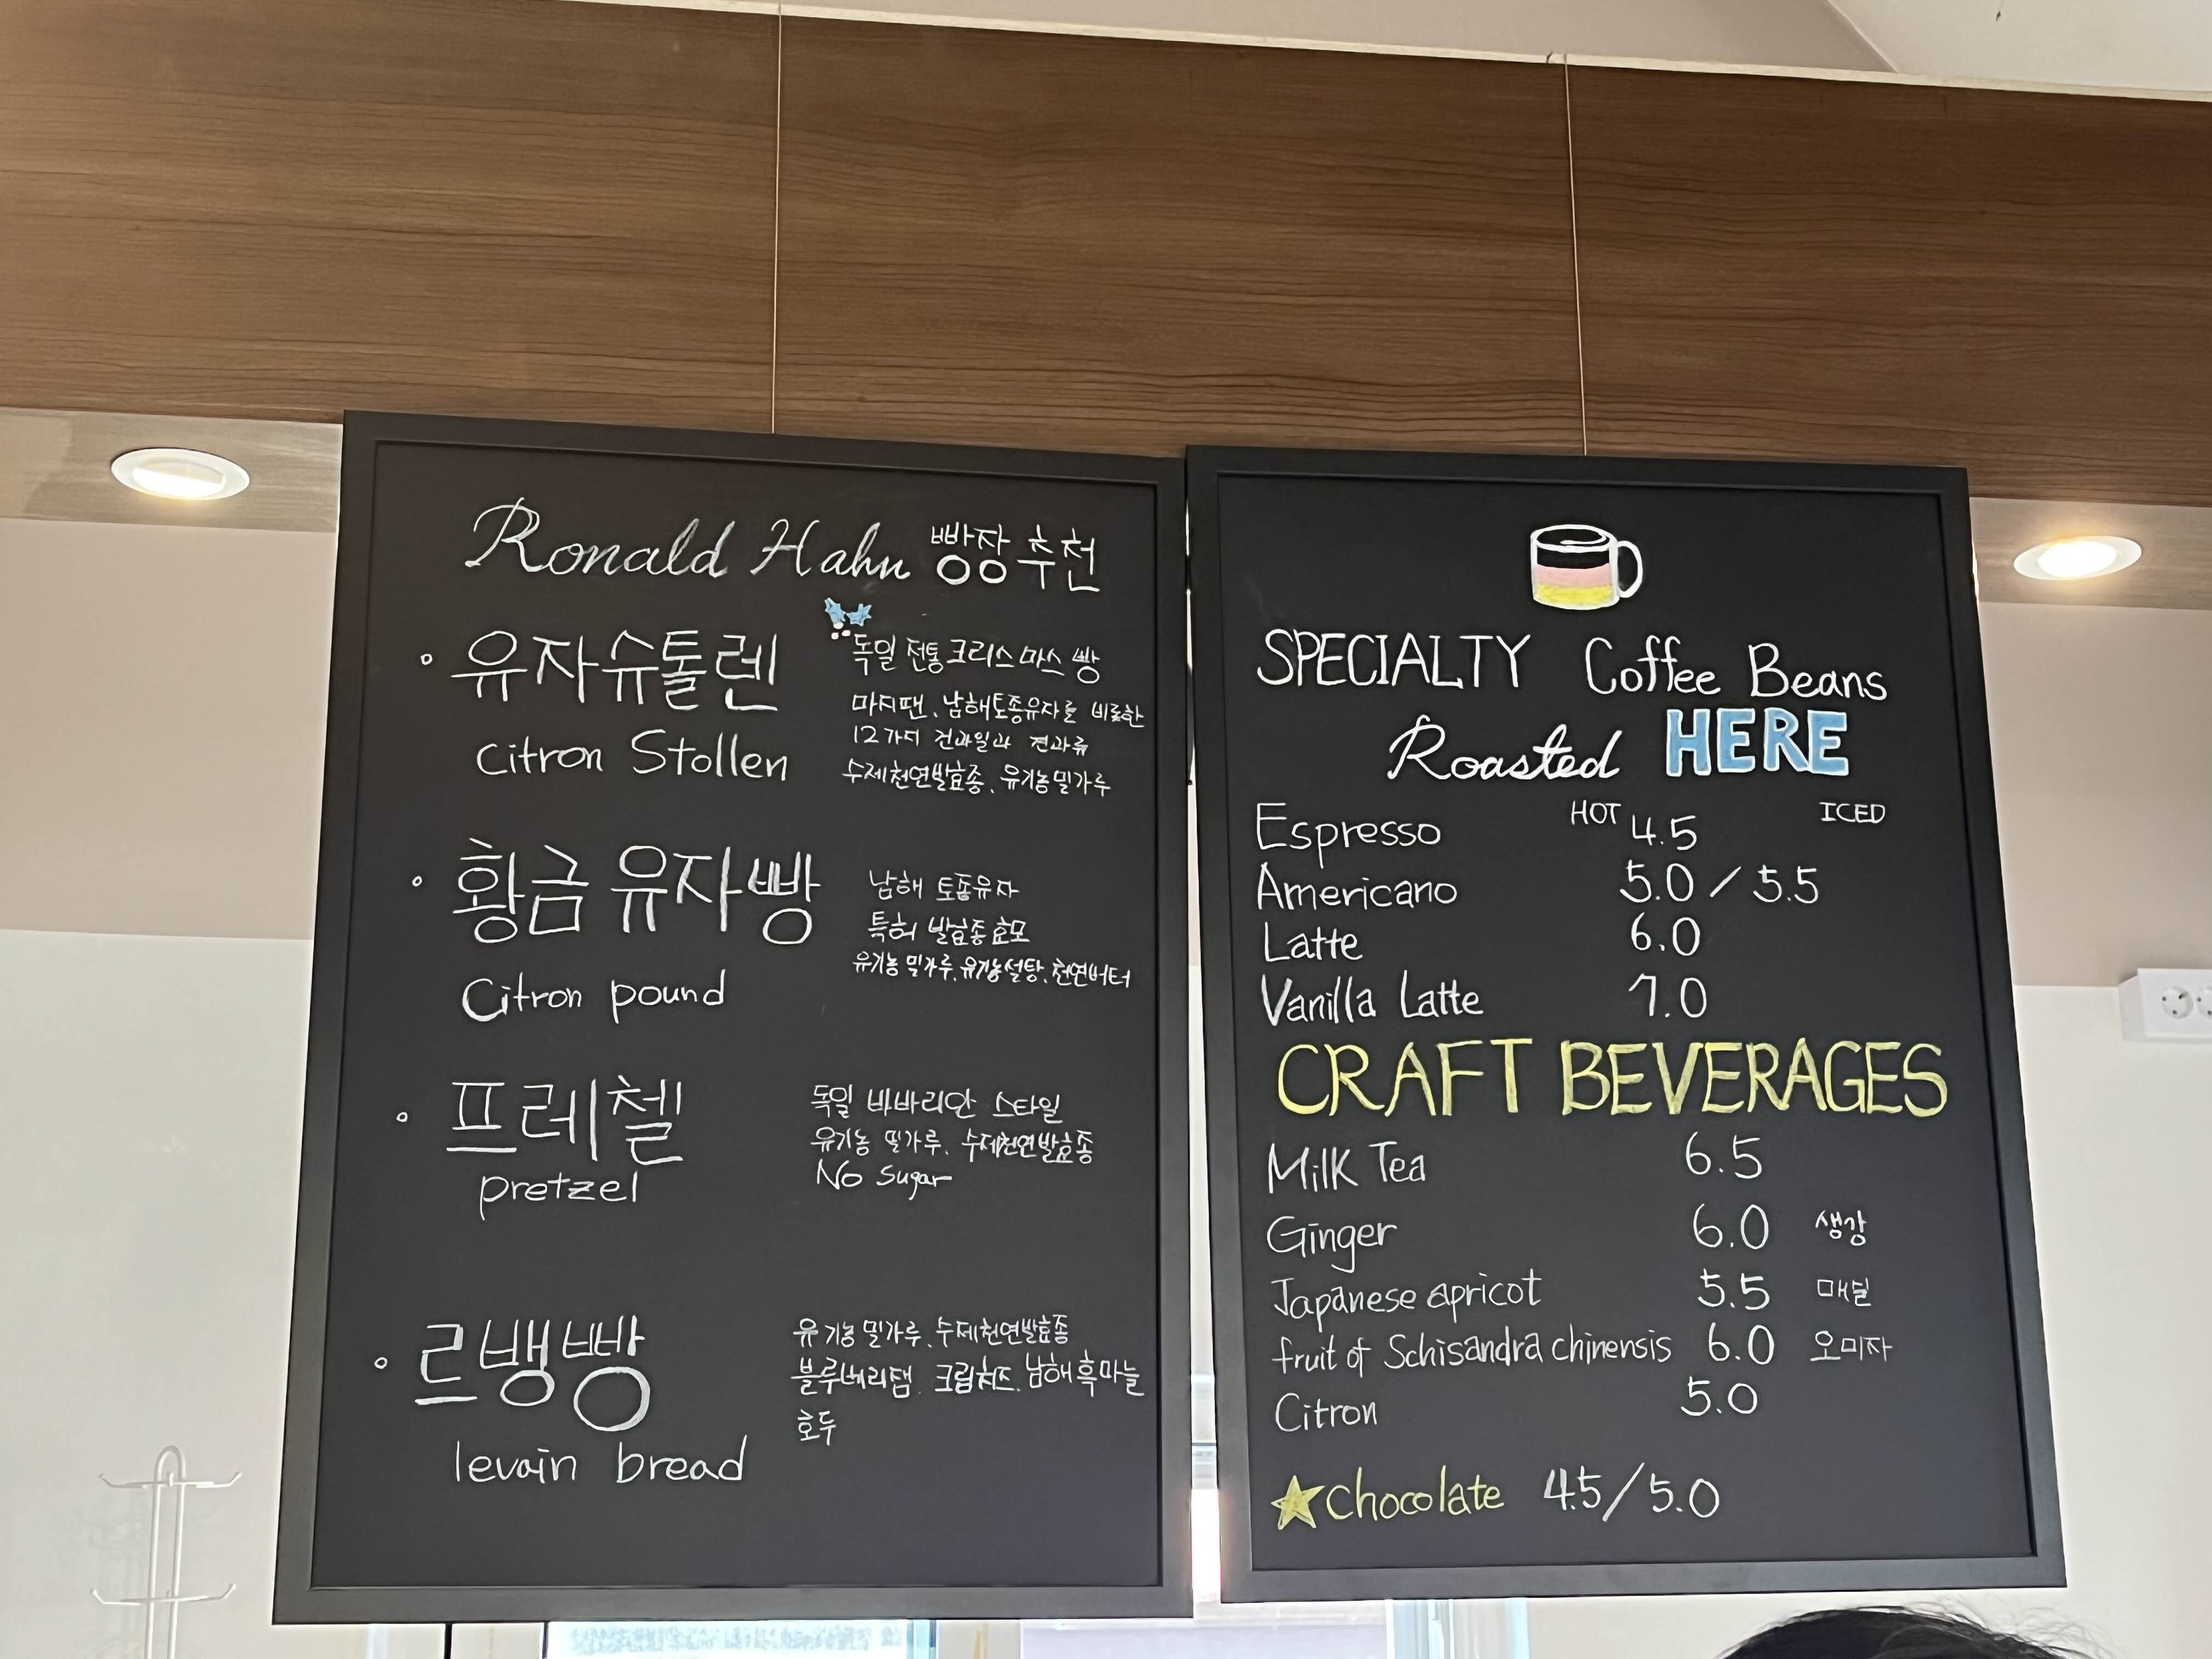 Ronald Hahn 빵장추천
유자슈톨렌
Citron Stollen
독일 전통 크리스마스 빵
마지팬, 남해토종유자를 비롯한
12가지 건과일과 견과류
수제천연발효종, 유기농밀가루
황금 유자빵
Citron pound
남해 토종유자
특허 발효종효모
유기농 밀가루, 유기농설탕, 천연버터
프레첼
pretzel
독일 바바리안 스타일
유기농 밀가루, 수제천연발효종
No Sugar
르뱅빵
levain bread
유기농밀가루, 수제천연발효종
블루베리잼, 크림치즈, 남해흑마늘
호두
SPECIALTY Coffee Beans
Roasted HERE
HOT ICED
Espresso 4.5
Americano 5.0 / 5.5
Latte 6.0
Vanilla Latte 7.0
CRAFT BEVERAGES
Milk Tea 6.5
Ginger 6.0 생강
Japanese apricot 5.5 매실
fruit of Schisandra chinensis 6.0 오미자
Citron 5.0
Chocolate 4.5/5.0